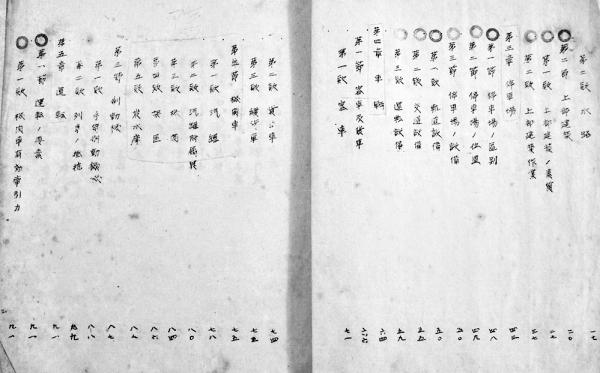 第二款 水路 一七
第二節 上部建築 二〇
第一款 上部建築ノ 二七
第二款 上部建築作業 三七
第三章 停車場
第一節 停車場ノ区別 四八
第二節 停車場ノ位置 四九
第三節 停車場ノ設備 五〇
第一款 軌道設備 五〇
第二款 交通設備 五五
第三款 運転設備 五九
第四章 車輌 六四
第一節 客車及貨車 六六
第一款 客車 七一
第二款 七四
第三款 七五
第二節 機関車 七五
第一款 汽罐 七八
第二款 汽罐附属具 八〇
第三款 八四
第四款 八六
第五款 炭水庫 八六
第三節 制動機 八七
第一款 手用制動機 八八
第二款 列車ノ抵抗
第五章 運転 九一
第一節 運転ノ 九一
第一款 機関車有効牽引力 九一